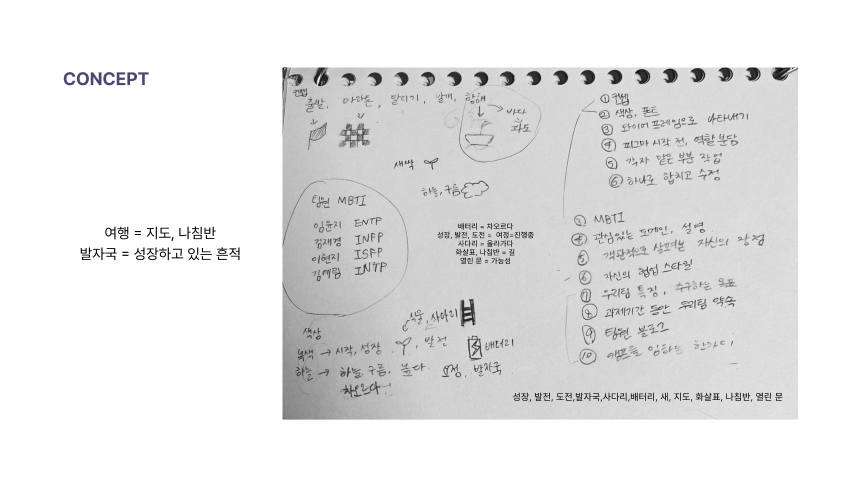 CONCEPT
여행 = 지도, 나침반
발자국 = 성장하고 있는 흔적
컨셉
출발, 마라톤, 달리기, 날개, 항해
바다
파도
새싹
하늘, 구름
팀원 MBTI
임윤지 ENTP
김채경 INFP
이현지 ISFP
김예림 INTP
배터리 = 차오르다
성장, 발전, 도전 = 여정=진행중
사다리 = 올라가다
화살표, 나침반 = 길
열린 문 = 가능성
색상
녹색 → 시작, 성장, 발전
식물, 사다리
배터리
하늘 → 하늘 구름, 높다
차오르다
요정, 발자국
① 컨셉
② 색상, 폰트
③ 와이어 프레임으로 나타내기
④ 피그마 시작 전, 역할분담
⑤ 각자 맡은 부분 작업
⑥ 하나로 합치고 수정
③ MBTI
④ 관심있는 도메인, 설명
⑤ 객관적으로 살펴본 자신의 장점
⑥ 자신의 협업 스타일
⑦ 우리팀 특징, 추구하는 목표
⑧ 과제기간 동안 우리팀 약속
⑨ 팀원 블로그
⑩ 캠프를 임하는 한마디
성장, 발전, 도전,발자국,사다리,배터리, 새, 지도, 화살표, 나침반, 열린 문